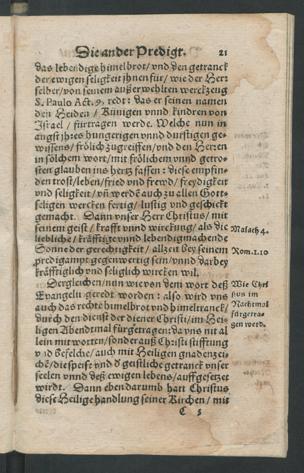 Die ander Predigt. 21
das lebendige himelbrot/ vnd den getranck
der ewigen seligkeit jhnen für/ wie der Herr
selber/ von seinem außerwehlten werckzeug
S. Paulo Act. 9. redt: das er seinen namen
den Heiden/ Künigen vnnd kindren von
Israel/ fürtragen werde. Welche nun in
angst jhres hungerigen vnnd durstigen ge-
wissens/ frölich zugreiffen/ vnd den Herren
in sölchem wort/ mit frölichem vnnd getro-
sten glauben ins hertz fassen: diese empfin-
den trost/ leben/ fried vnd frewd/ freydigkeit
vnd seligkeit/ vñ werdẽ auch zu allen Gott-
seligen wercken fertig/ lustig vnd geschickt
gemacht. Dann vnser Herr Christus/ mit
seinem geist/ krafft vnnd wirckung/ als die
liebliche/ kräfftige vnnd lebendigmachende
Sonne der gerechtigkeit/ allzeit bey seinem
predigampt gegenwertig sein/ vnnd darbey
kräfftiglich vnd seliglich wircken wil.
Malach 4.
Rom. 1. 10
Dergleichen/ nun wie von dem wort deß
Euangelii geredt worden: also wird vns
auch das rechte himelbrot vnnd himeltranck/
durch den dienst der diener Christi/ im Hei-
ligen Abendtmal fürgetragen: da vns nit al
lein mit worten/ sonder auß Christi stifftung
vnd Geselche/ auch mit Heiligen gnadenzei-
chẽ/ die speise vnd d' geistliche getranck vnser
seelen vnnd deß ewigen lebens/ auffgesetzet
wirdt. Dann eben darumb hat Christus
diese Heilige handlung seiner Kirchen/ mit
Wie Chri
stus im
Nachtmal
fürgetra-
gen werd.
C 5